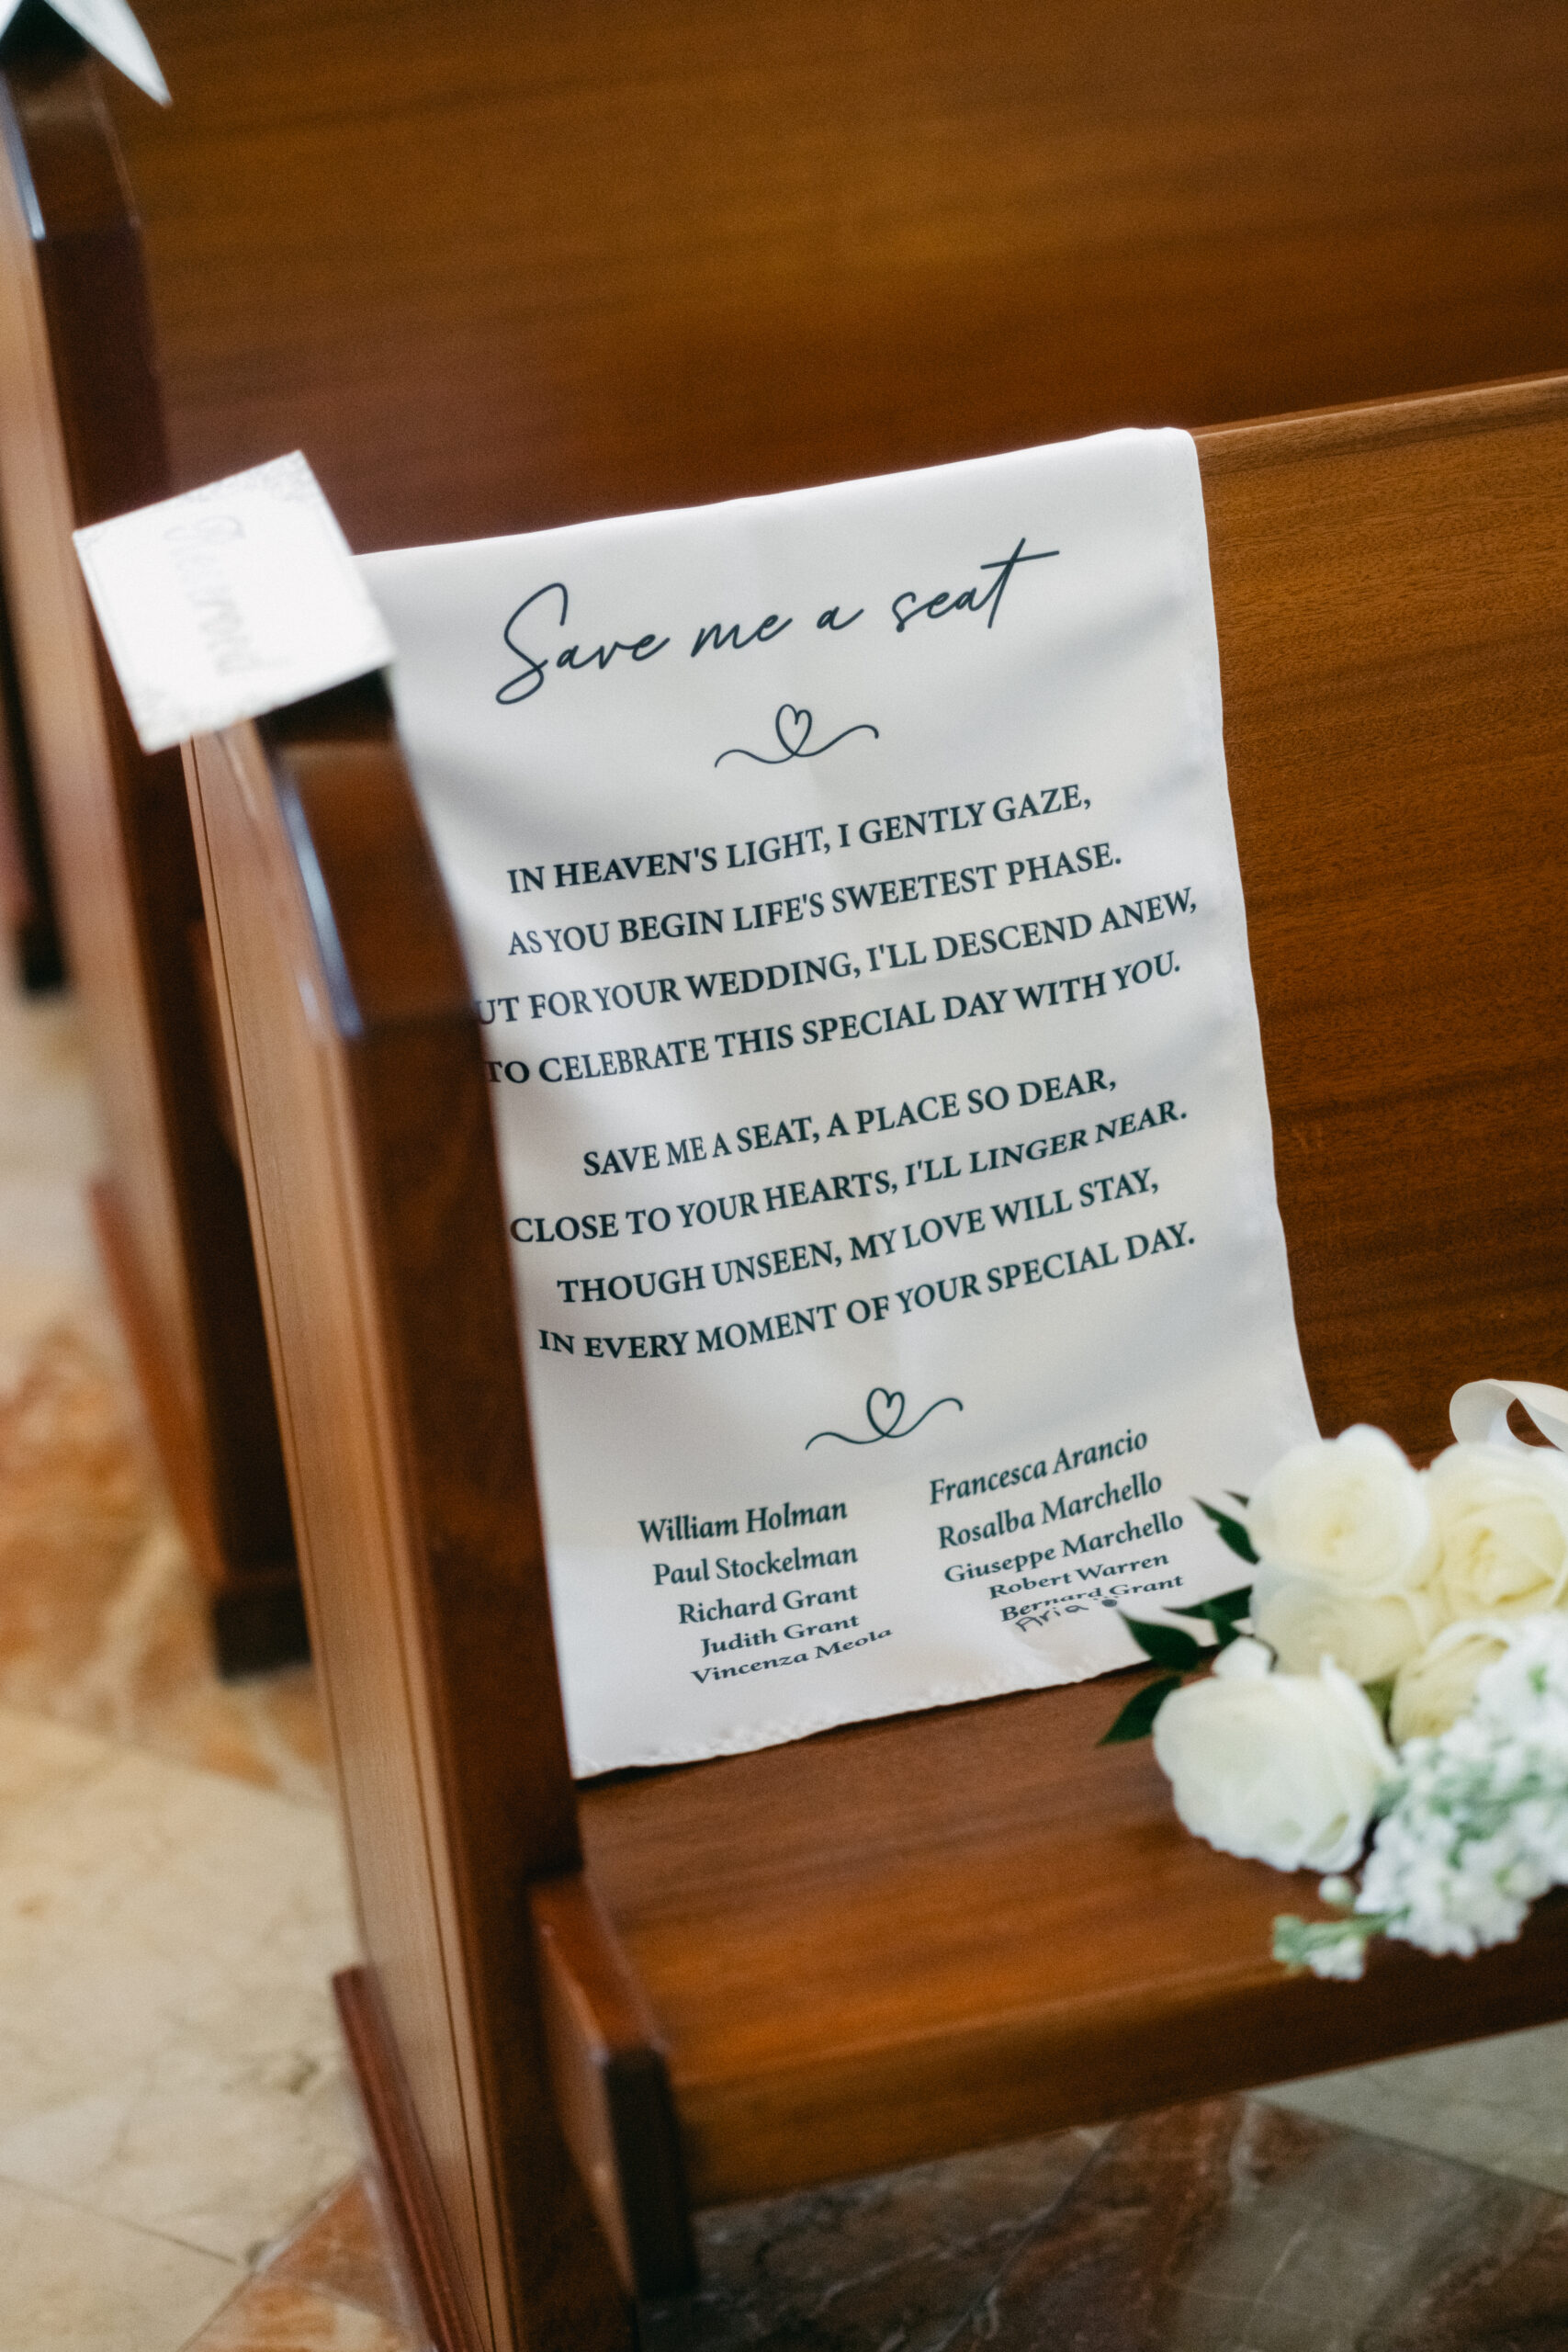 Reserved
Save me a seat
IN HEAVEN'S LIGHT, I GENTLY GAZE,
AS YOU BEGIN LIFE'S SWEETEST PHASE.
UT FOR YOUR WEDDING, I'LL DESCEND ANEW,
TO CELEBRATE THIS SPECIAL DAY WITH YOU.
SAVE ME A SEAT, A PLACE SO DEAR,
CLOSE TO YOUR HEARTS, I'LL LINGER NEAR.
THOUGH UNSEEN, MY LOVE WILL STAY,
IN EVERY MOMENT OF YOUR SPECIAL DAY.
William Holman
Paul Stockelman
Richard Grant
Judith Grant
Vincenza Meola
Francesca Arancio
Rosalba Marchello
Giuseppe Marchello
Robert Warren
Bernard Grant
Aria